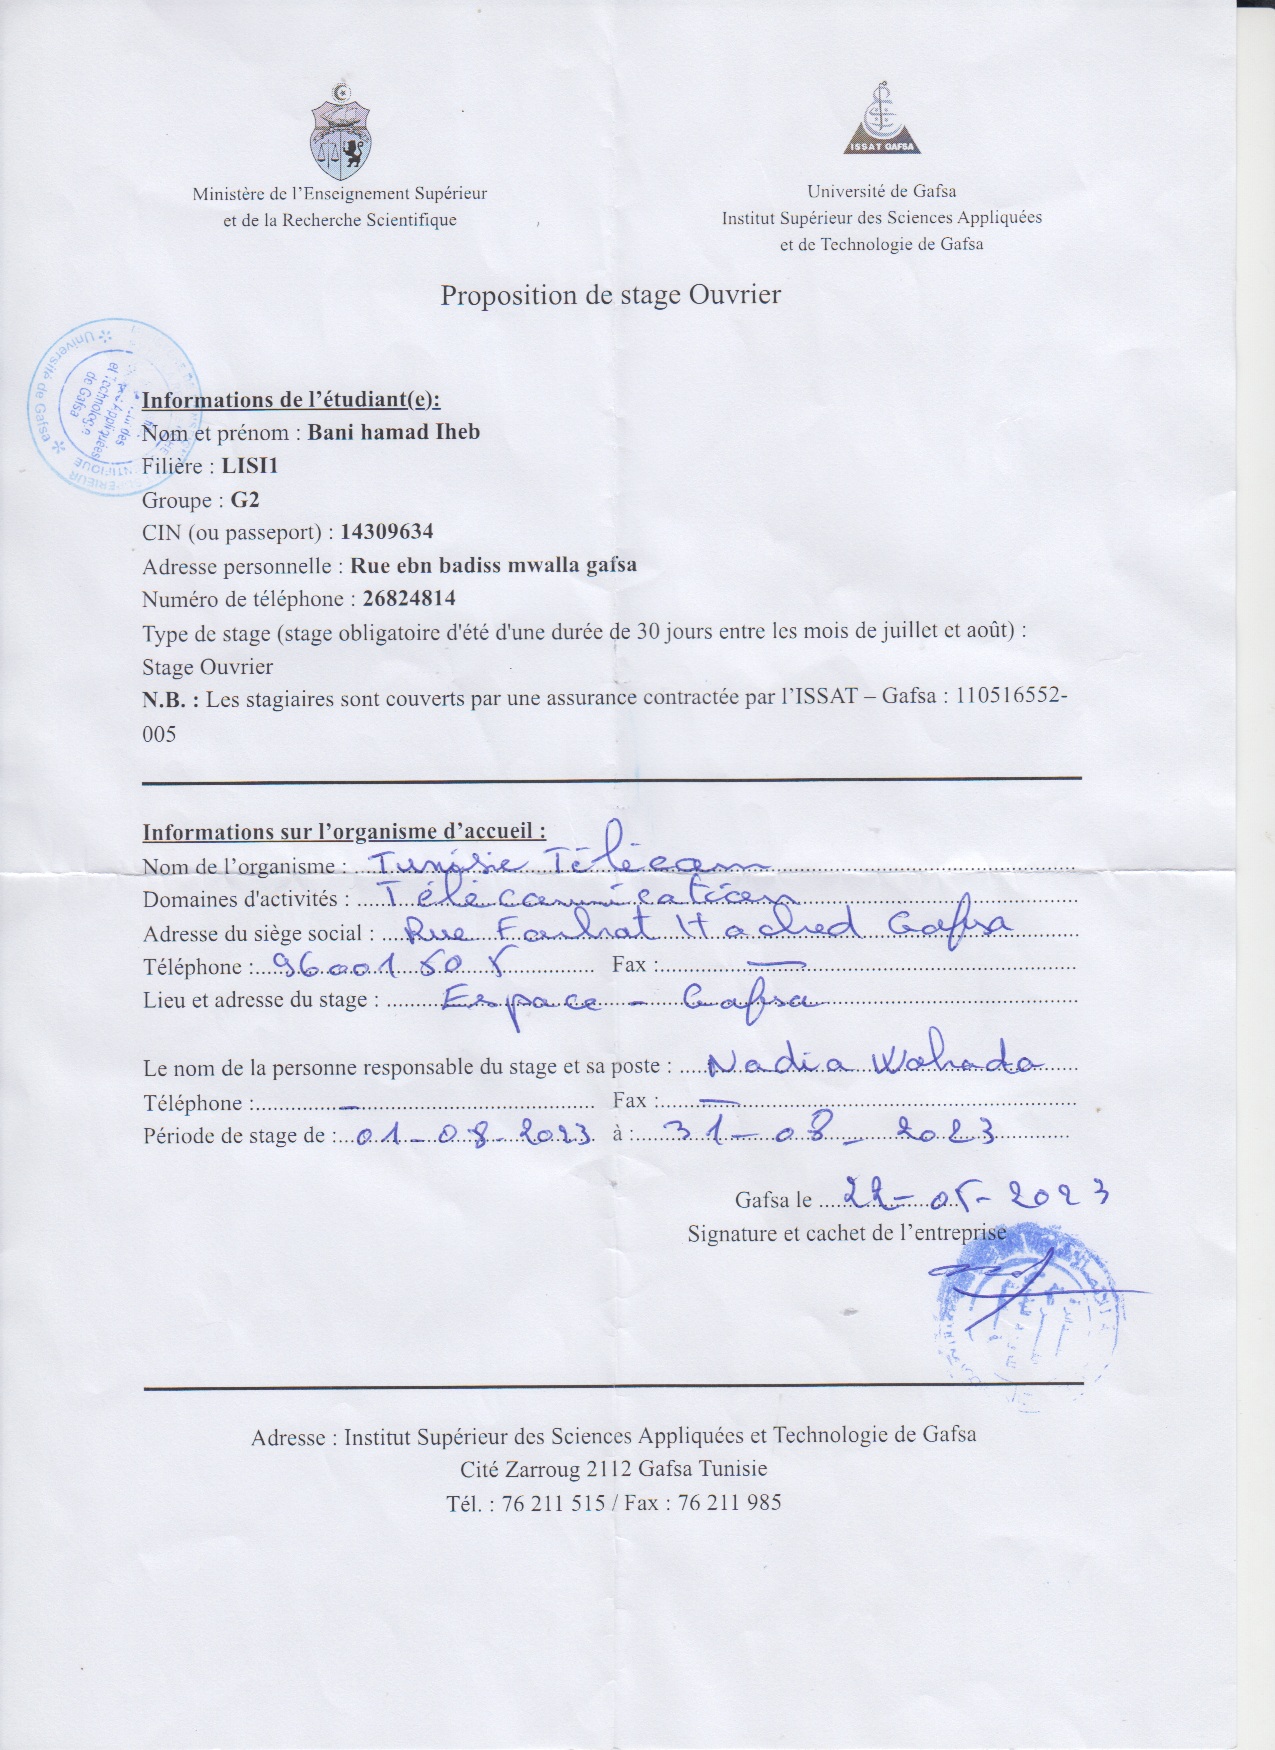 ISSAT GAFSA
Ministère de l'Enseignement Supérieur
et de la Recherche Scientifique
Université de Gafsa
Institut Supérieur des Sciences Appliquées
et de Technologie de Gafsa
Proposition de stage Ouvrier
Université de Gafsa
et Technologie
de Gafsa
Informations de l'étudiant(e):
Nom et prénom : Bani hamad Iheb
Filière : LISI1
Groupe : G2
CIN (ou passeport) : 14309634
Adresse personnelle : Rue ebn badiss mwalla gafsa
Numéro de téléphone : 26824814
Type de stage (stage obligatoire d'été d'une durée de 30 jours entre les mois de juillet et août) :
Stage Ouvrier
N.B. : Les stagiaires sont couverts par une assurance contractée par l'ISSAT – Gafsa : 110516552-
005
Informations sur l'organisme d'accueil :
Nom de l'organisme : Tunisie Télécom
Domaines d'activités : Télécomunication
Adresse du siège social : Rue Farhat Hached Gafsa
Téléphone : Fax : —
Lieu et adresse du stage : Espace - Gafsa
Le nom de la personne responsable du stage et sa poste : Nadia Wahada
Téléphone : - Fax : —
Période de stage de : 01-08-2023 à : 31-08-2023
Gafsa le 22-05-2023
Signature et cachet de l'entreprise
Adresse : Institut Supérieur des Sciences Appliquées et Technologie de Gafsa
Cité Zarroug 2112 Gafsa Tunisie
Tél. : 76 211 515 / Fax : 76 211 985